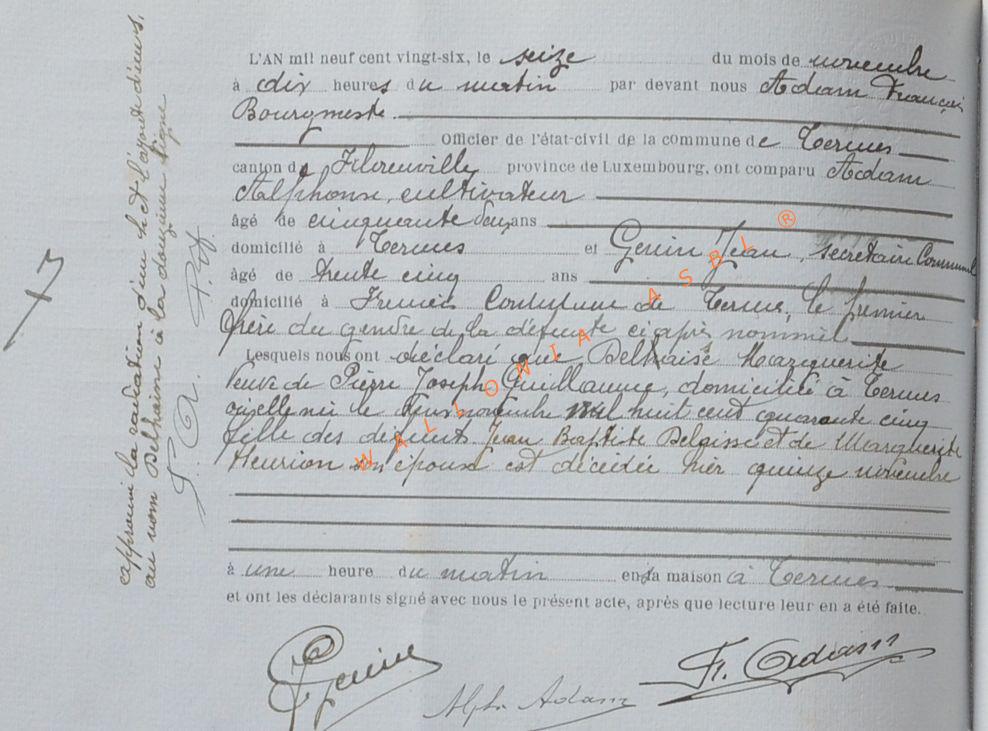 L'AN mil neuf cent vingt-six, le seize du mois de novembre
à dix heures du matin par devant nous Adam François
Bourgmestre.
Officier de l'état-civil de la commune de Termes
canton de Florenville province de Luxembourg, ont comparu Adam
Alphonse, cultivateur
âgé de cinquante deux ans
domicilié à Termes et Genin Jean, secrétaire Communal
âgé de trente cinq ans
domicilié à Frenois Commune de Termes, le premier
frère du gendre de la défunte ci après nommée
Lesquels nous ont déclaré que Delhaise Marguerite
Veuve de Pierre Joseph Guillaume, domiciliée à Termes
née le novembre mil huit cent quarante cinq
fille des défunts Jean Baptiste Delaisse et de Marguerite
Henrion son épouse est décédée hier quinze novembre
à une heure du matin en sa maison à Termes
et ont les déclarants signé avec nous le présent acte, après que lecture leur en a été faite.
Genin
Alph. Adam
Fr. Adam
approuvé la radiation d'un h et l'ajout d'un s
au nom Delhaisse à la douzième ligne
WALLONIA ASBL ®